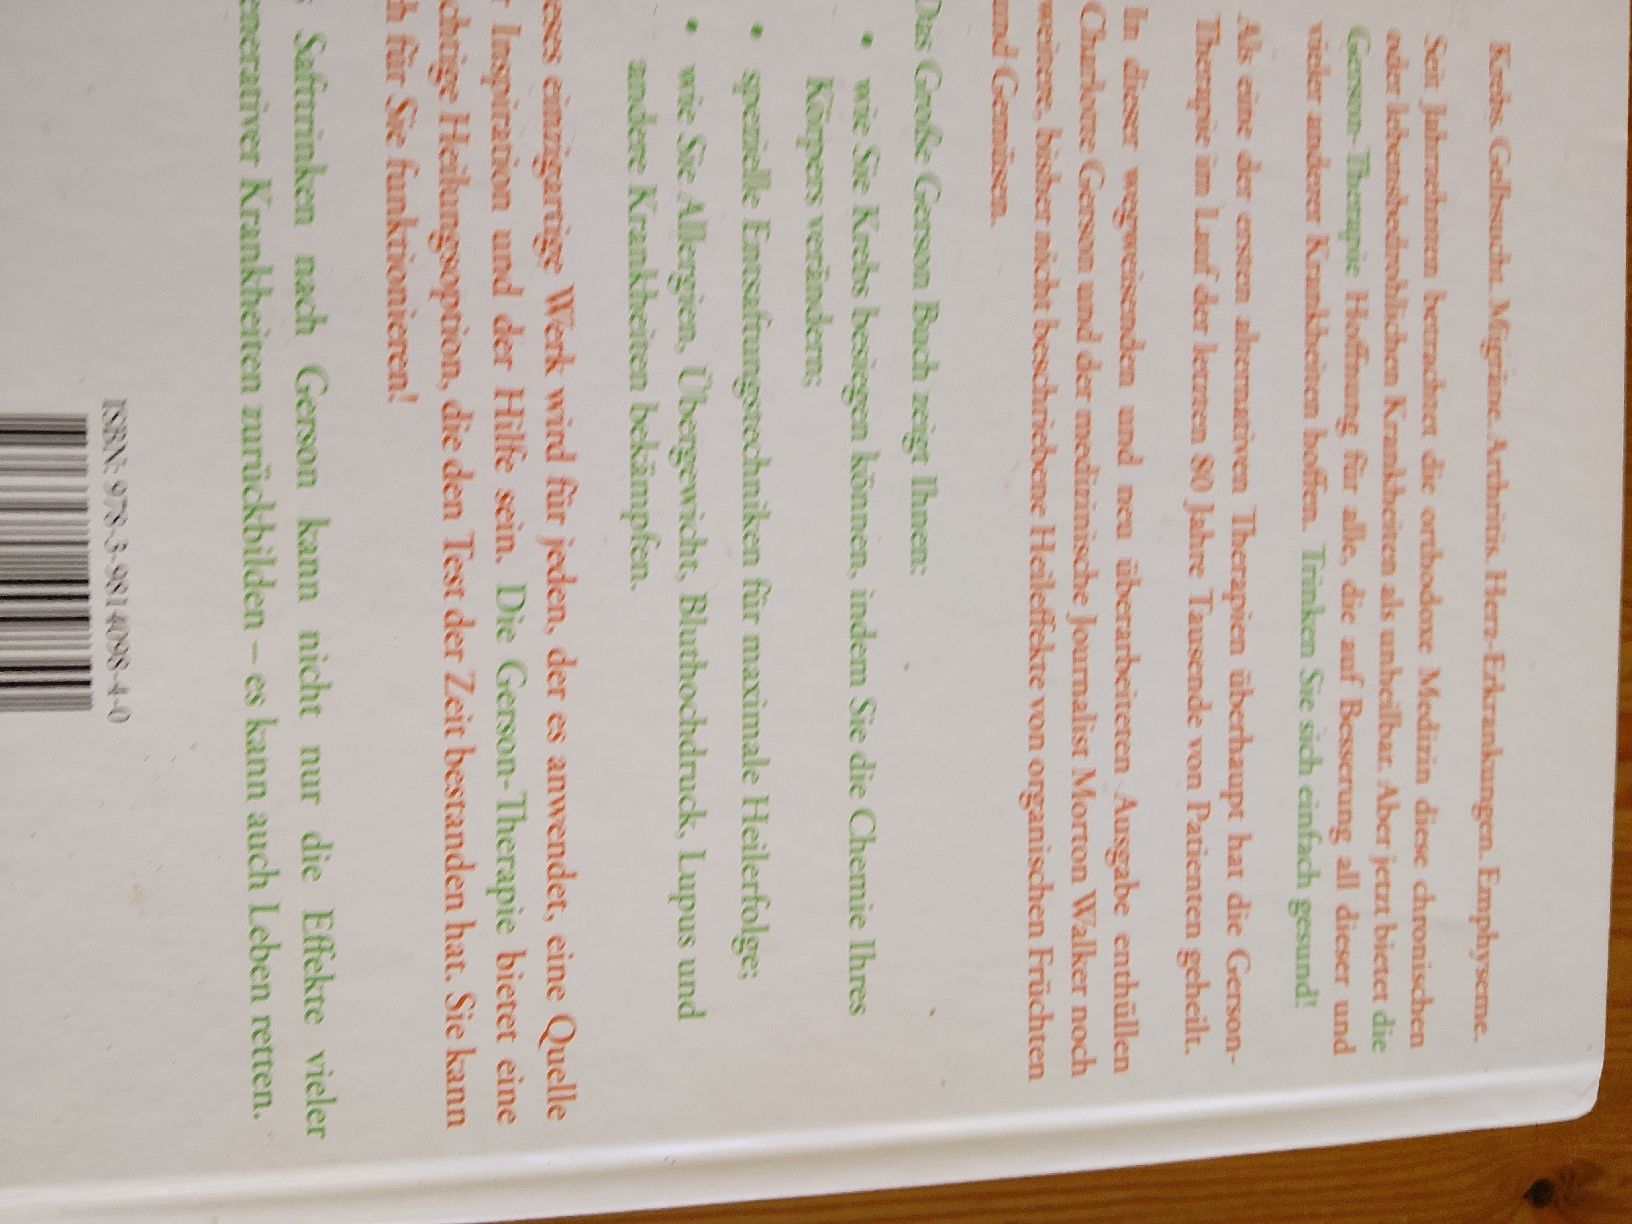 Krebs. Gelbsucht. Migräne. Arthritis. Herz-Erkrankungen. Emphyseme.
Seit Jahrzehnten betrachtet die orthodoxe Medizin diese chronischen
oder lebensbedrohlichen Krankheiten als unheilbar. Aber jetzt bietet die
Gerson-Therapie Hoffnung für alle, die auf Besserung all dieser und
vieler anderer Krankheiten hoffen. Trinken Sie sich einfach gesund!
Als eine der ersten alternativen Therapien überhaupt hat die Gerson-
Therapie im Lauf der letzten 80 Jahre Tausende von Patienten geheilt.
In dieser wegweisenden und neu überarbeiteten Ausgabe enthüllen
Charlotte Gerson und der medizinische Journalist Morton Walker noch
weitere, bisher nicht beschriebene Heileffekte von organischen Früchten
und Gemüsen.
Das Große Gerson Buch zeigt Ihnen:
• wie Sie Krebs besiegen können, indem Sie die Chemie Ihres
Körpers verändern;
• spezielle Entsaftungstechniken für maximale Heilerfolge;
• wie Sie Allergien, Übergewicht, Bluthochdruck, Lupus und
andere Krankheiten bekämpfen.
eses einzigartige Werk wird für jeden, der es anwendet, eine Quelle
r Inspiration und der Hilfe sein. Die Gerson-Therapie bietet eine
chtige Heilungsoption, die den Test der Zeit bestanden hat. Sie kann
h für Sie funktionieren!
s Safttrinken nach Gerson kann nicht nur die Effekte vieler
enerativer Krankheiten zurückbilden – es kann auch Leben retten.
ISBN: 978-3-9814098-4-0